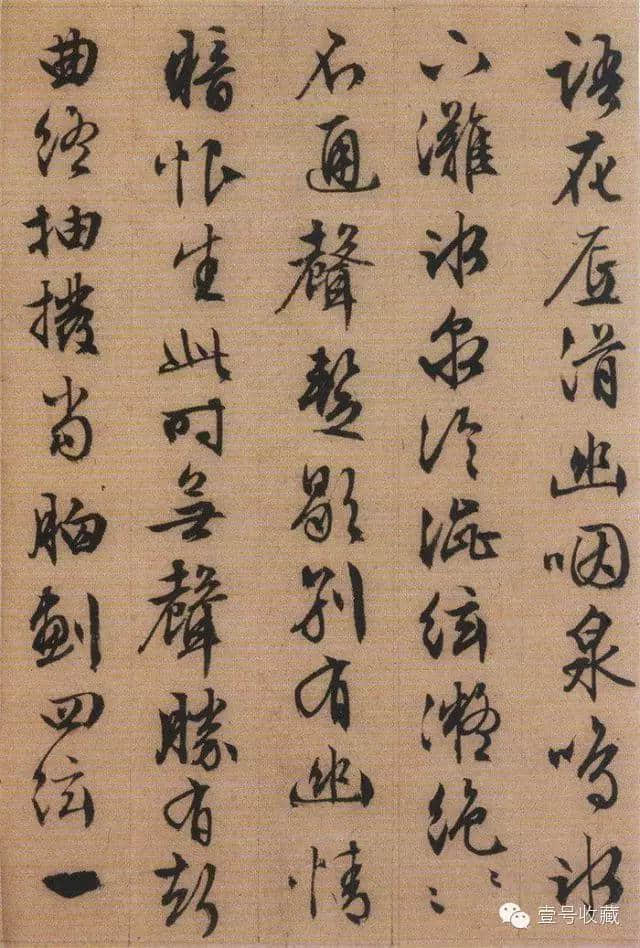 語花底滑幽咽泉鳴冰
下灘冰泉冷澀絃凝絕〻〻
不通聲暫歇別有幽情
暗恨生此時無聲勝有聲
曲終抽撥當胸劃四絃一
壹号收藏